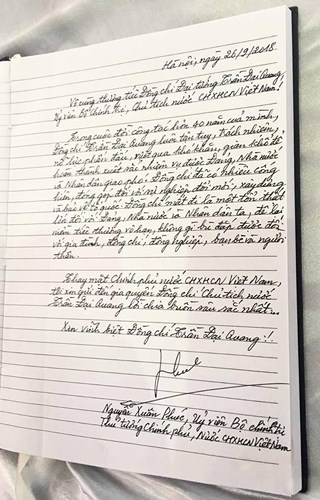 Hà nội, ngày 26/9/2018.
Vô cùng thương tiếc Đồng chí Đại tướng Trần Đại Quang,
Uỷ viên Bộ Chính trị, Chủ tịch nước CHXHCN Việt Nam!
Trong cuộc đời công tác hơn 40 năm của mình,
Đồng chí Trần Đại Quang luôn tận tụy, trách nhiệm,
nỗ lực phấn đấu, vượt qua khó khăn, gian khổ để
hoàn thành xuất sắc nhiệm vụ được Đảng, Nhà nước
và Nhân dân giao phó. Đồng chí đã có nhiều công
hiến, đóng góp đối với sự nghiệp đổi mới, xây dựng
và bảo vệ Tổ quốc. Đồng chí mất đi là một tổn thất
lớn đối với Đảng, Nhà nước và Nhân dân ta, để lại
niềm tiếc thương vô hạn, không gì bù đắp được đối
với gia đình, đồng chí, đồng nghiệp, bạn bè và người
thân.
Thay mặt Chính phủ nước CHXHCN Việt Nam,
tôi xin gửi đến gia quyến Đồng chí Chủ tịch nước
Trần Đại Quang lời chia buồn sâu sắc nhất.
Xin vĩnh biệt Đồng chí Trần Đại Quang!
Nguyễn Xuân Phúc, Uỷ viên Bộ chính trị
Thủ tướng Chính phủ, Nước CHXHCN Việt Nam